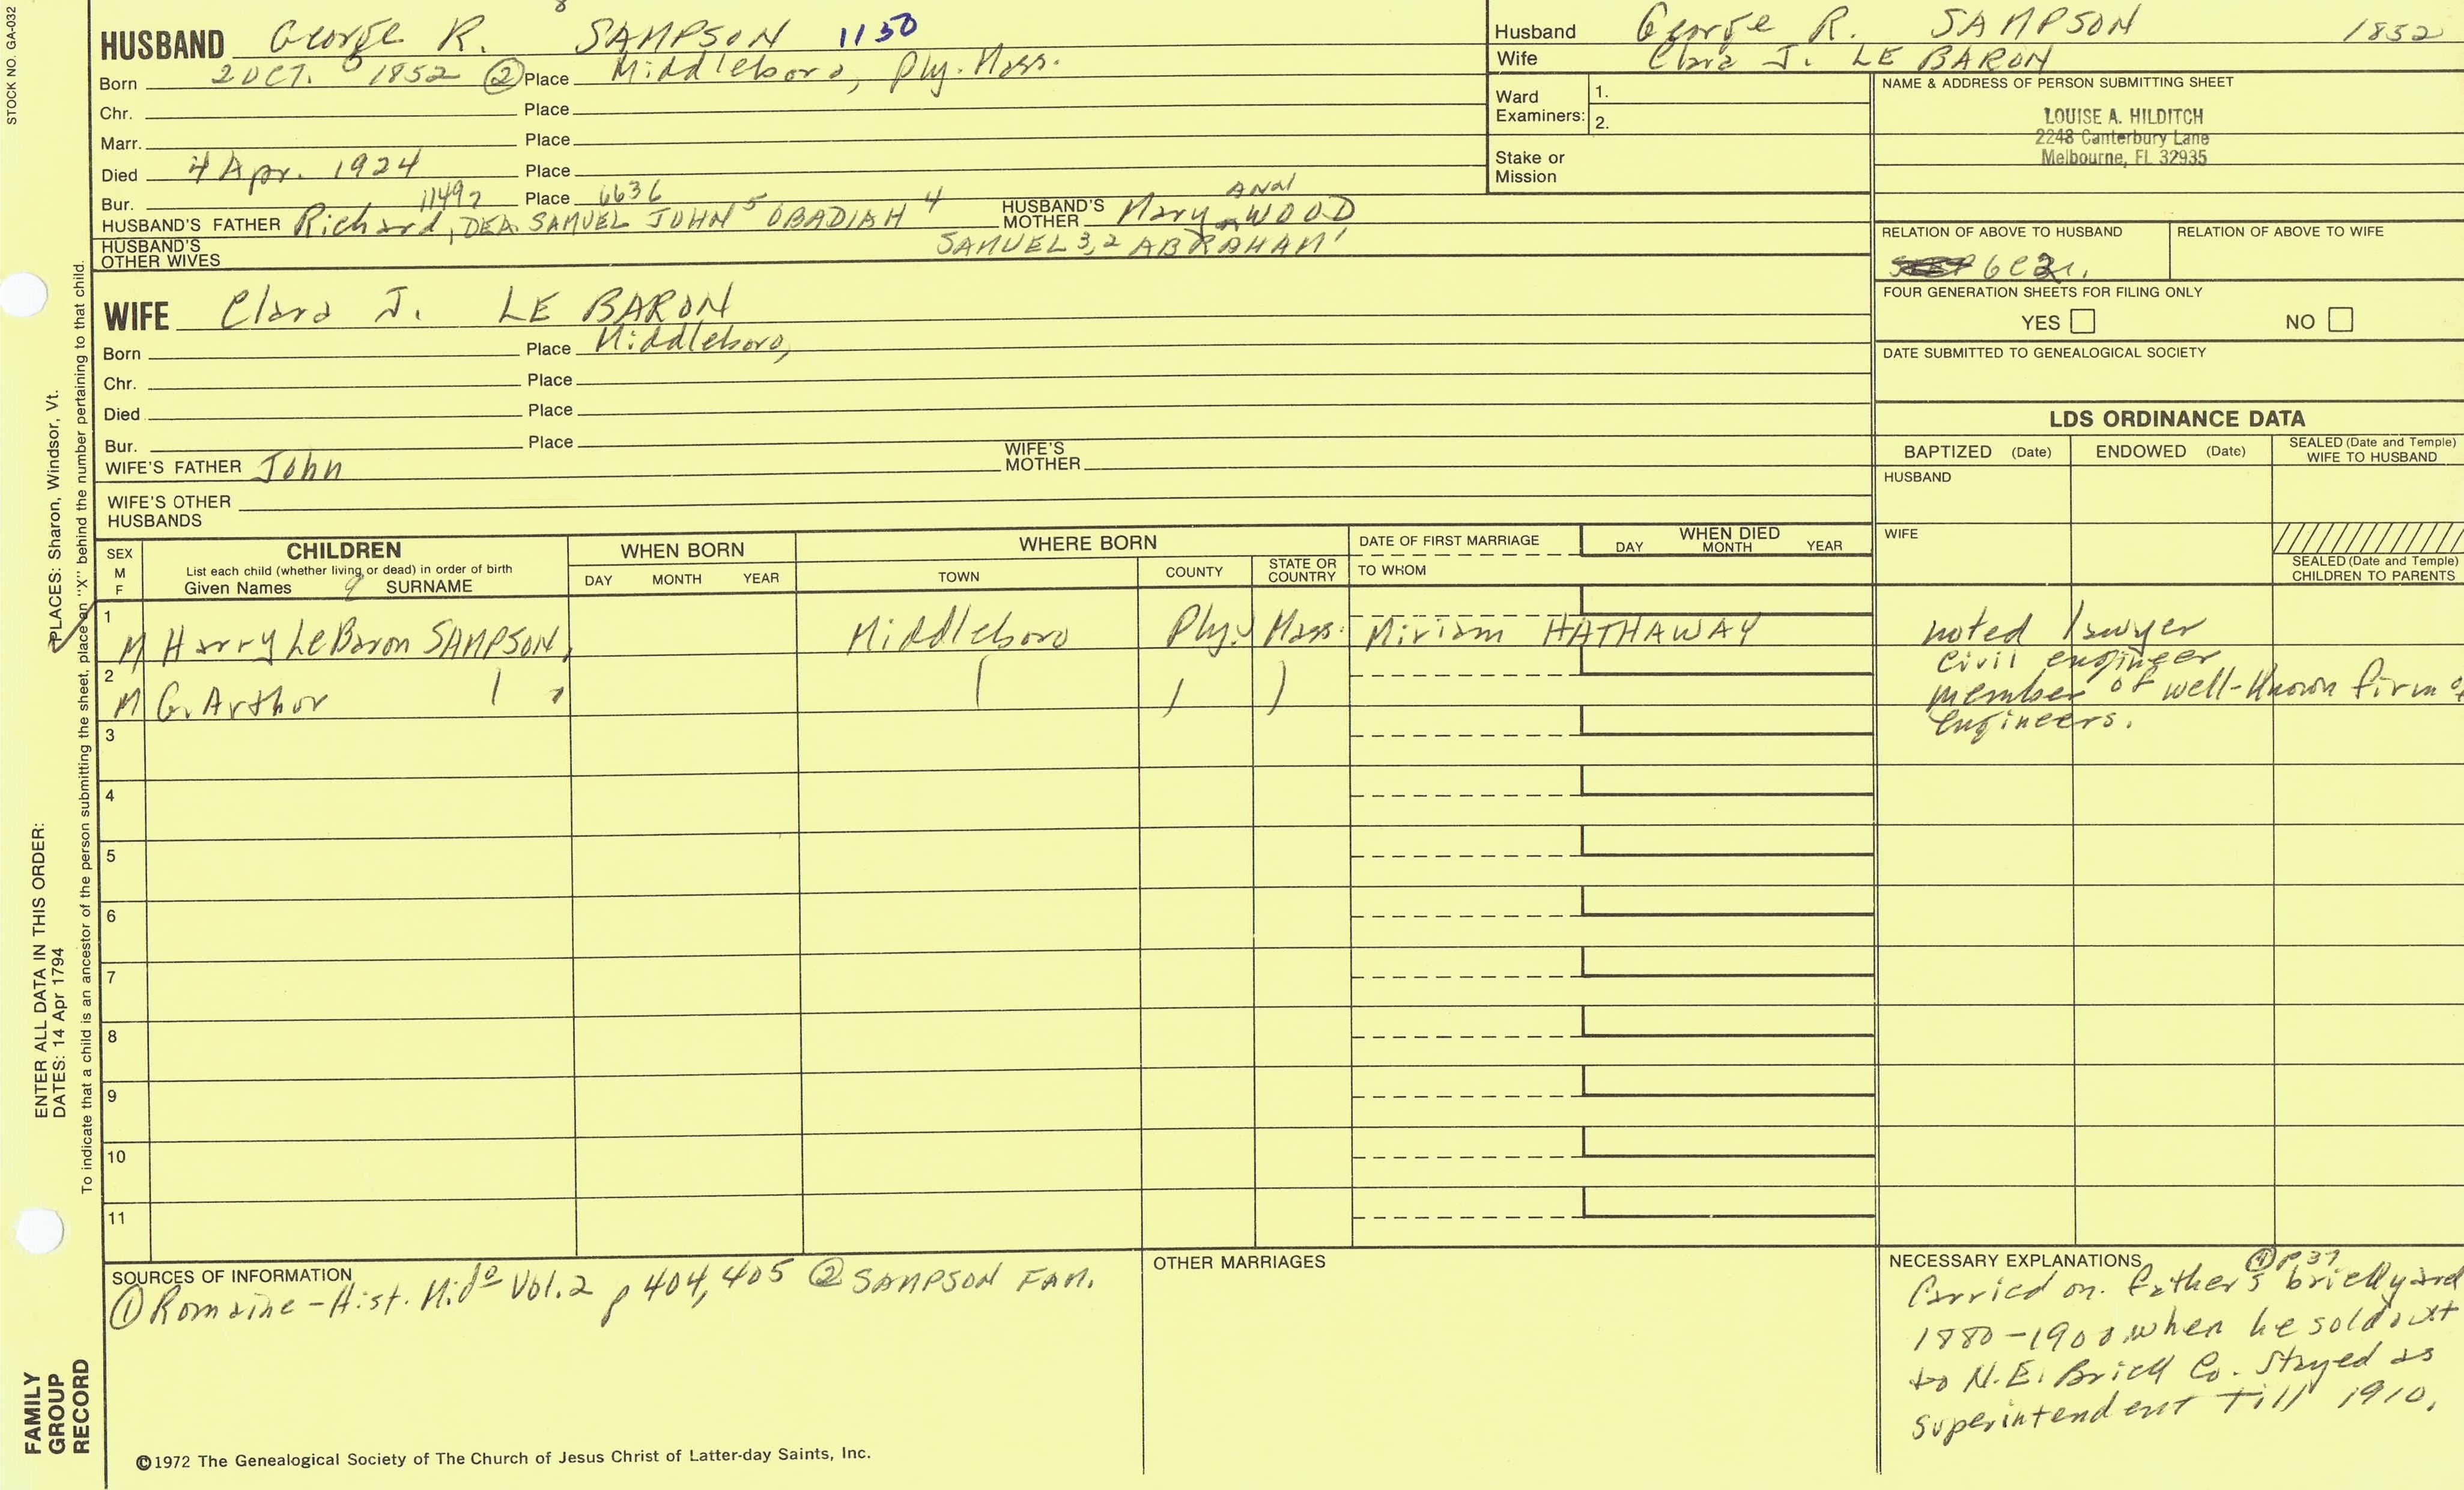 STOCK NO. GA-032
8
HUSBAND George R. SAMPSON 1150
Born 2 OCT. 1852 ② Place Middleboro, Ply. Mass.
Chr. Place
Marr. Place
Died 4 Apr. 1924 Place
Bur. 11497 Place 6636
HUSBAND'S FATHER Richard, DEA. SAMUEL JOHN 5 OBADIAH 4
HUSBAND'S MOTHER Mary WOOD
SAMUEL 3,2 ABRAHAM 1
HUSBAND'S OTHER WIVES
WIFE Clara J. LE BARON
Born Place Middleboro,
Chr. Place
Died Place
Bur. Place
WIFE'S FATHER John
WIFE'S MOTHER
WIFE'S OTHER HUSBANDS
Husband George R. SAMPSON 1852
Wife Clara J. LE BARON
Ward Examiners: 1.
2.
Stake or Mission
NAME & ADDRESS OF PERSON SUBMITTING SHEET
LOUISE A. HILDITCH
2248 Canterbury Lane
Melbourne, FL 32935
RELATION OF ABOVE TO HUSBAND RELATION OF ABOVE TO WIFE
FOUR GENERATION SHEETS FOR FILING ONLY
YES NO
DATE SUBMITTED TO GENEALOGICAL SOCIETY
LDS ORDINANCE DATA
BAPTIZED (Date) ENDOWED (Date) SEALED (Date and Temple) WIFE TO HUSBAND
HUSBAND
WIFE
SEALED (Date and Temple) CHILDREN TO PARENTS
SEX M F
CHILDREN
List each child (whether living or dead) in order of birth
Given Names SURNAME
WHEN BORN
DAY MONTH YEAR
WHERE BORN
TOWN COUNTY STATE OR COUNTRY
DATE OF FIRST MARRIAGE
TO WHOM
WHEN DIED
DAY MONTH YEAR
1 M Harry LeBaron SAMPSON, Middleboro Ply. Mass. Miriam HATHAWAY noted lawyer
2 M G. Arthor civil engineer
member of well-known firm of
engineers.
3
4
5
6
7
8
9
10
11
SOURCES OF INFORMATION
① Romaine - Hist. Mido Vol. 2 p 404, 405 ② SAMPSON FAM.
OTHER MARRIAGES
NECESSARY EXPLANATIONS
P37
Carried on father's brickyard
1880-1900 when he sold out
to N.E. Brick Co. Stayed as
superintendent till 1910.
©1972 The Genealogical Society of The Church of Jesus Christ of Latter-day Saints, Inc.
FAMILY GROUP RECORD
ENTER ALL DATA IN THIS ORDER:
DATES: 14 Apr 1794
PLACES: Sharon, Windsor, Vt.
To indicate that a child is an ancestor of the person submitting the sheet, place an "X" behind the number pertaining to that child.